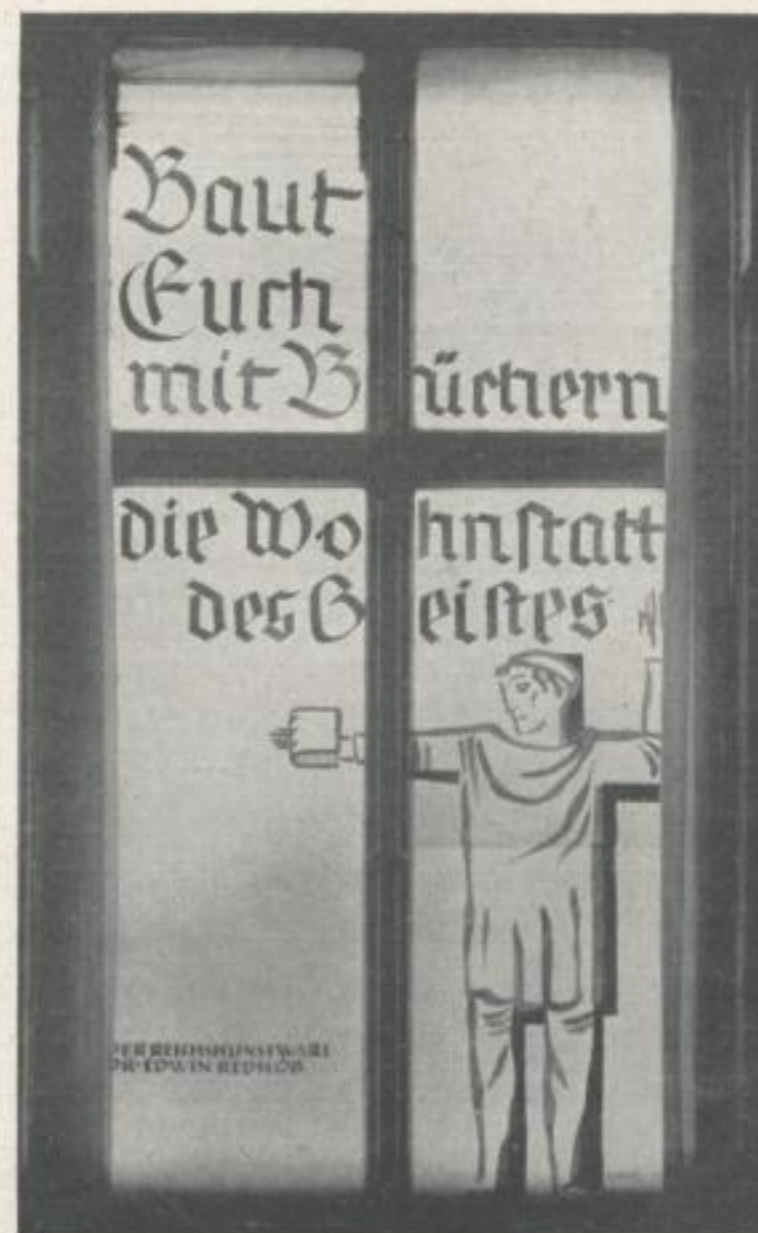 Baut
Euch
mit Büchern
die Wohnstatt
des Geistes
DER REICHSKUNSTWART
DR·EDWIN REDSLOB